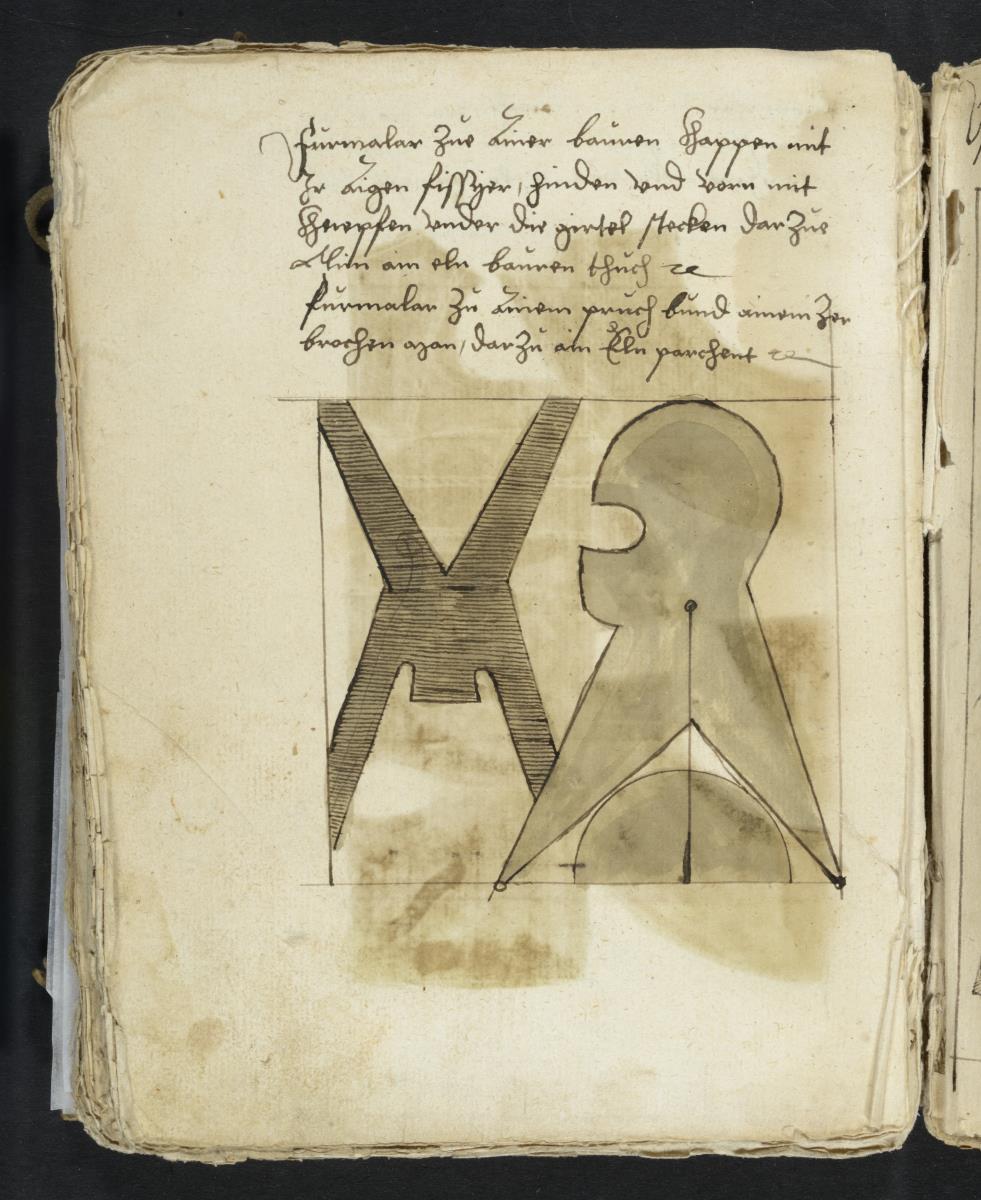 furmalar Zue Ainer bauren Khappen mit
Ir Aigen fissyer, hinden vnd vorn mit
vnder die girtel stecken dar Zue
ain eln bauren thuch
furmalar Zu Ainem pruch bund ainem Zer
brochen man, dar Zu ain Eln parchent